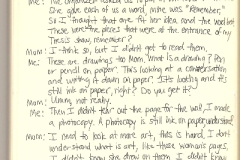 She gave each of us a word, mine was "Remember,"
So I thought that one fit her idea and the wool last
These were the pieces that were at the entrance of my
Thesis show, remember?
Mum: I think so, but I didn't get to read them.
Me: These are drawings too Mum. What is a drawing? Pen
or pencil on paper? This looking at a conversation
and writing it down on paper? Its looking and its
still ink on paper, right? Do you get it?
Mum: Umm, not really.
Me: Then I didn't tear out the page for the wall, I made
a photocopy. A photocopy is still ink on paper understand?
Mum: I need to look at more art, this is hard, I don't
understand what is art, like those woman's pages,
I didn't know she drew on them, I didn't know